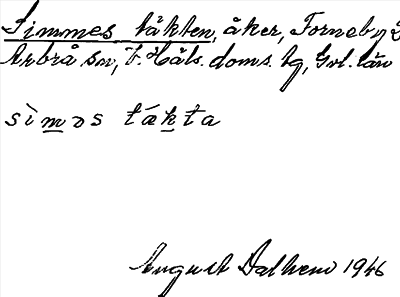 Simmes täkten, åker, Forneby 2
Arbrå sn, V. Häls. doms. tg, Gvl. län
sìmǝs tákta
August Dalhem 1946